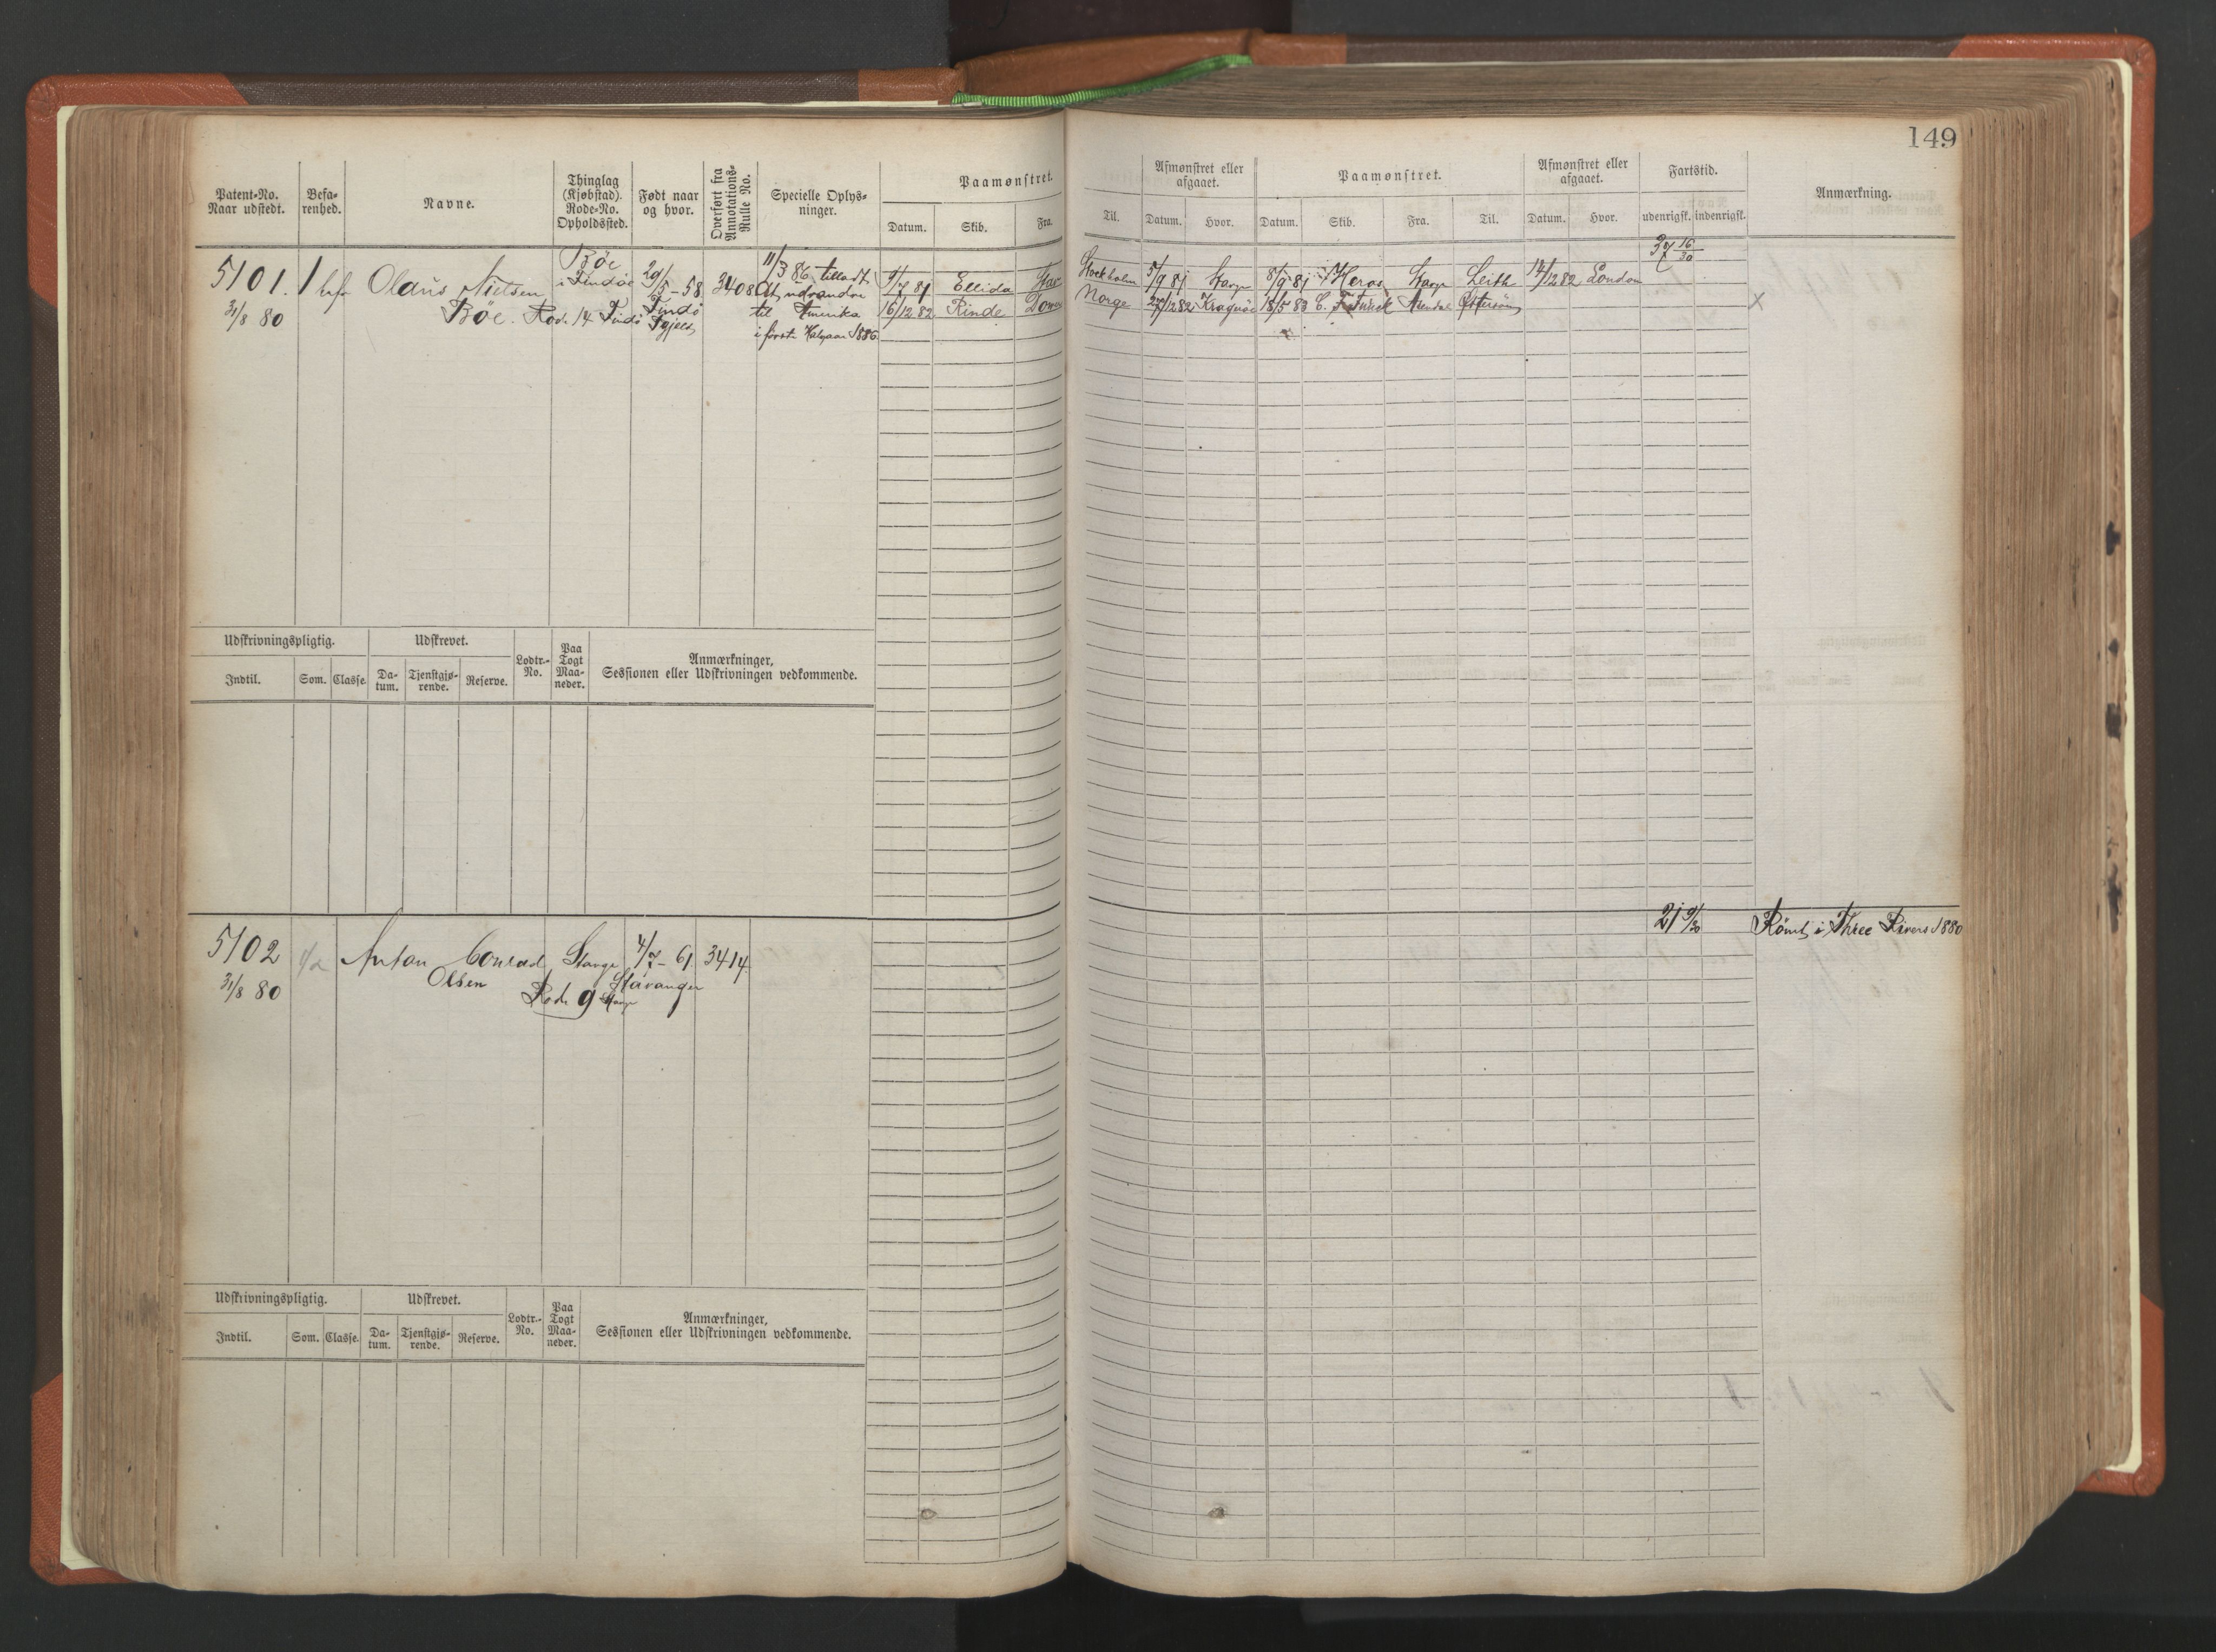 149
Patent-No. Naar udstedt.
Befarenhed.
Navne.
Thinglag (Kjøbstad). Rode-No. Opholdssted.
Født naar og hvor.
Overført fra Annotations-Rulle No.
Specielle Oplysninger.
Paamønstret.
Datum. Skib. Fra.
Til.
Afmønstret eller afgaaet.
Datum. Hvor.
Paamønstret.
Datum. Skib. Fra. Til.
Afmønstret eller afgaaet.
Datum. Hvor.
Fartstid.
udenrigsk. indenrigsk.
Anmærkning.
5101.
31/8 80
1 bef
Olaüs Nielsen
Böe. Rode 14 Findö
Böe
i Findöe
29/5-58
Findö
3408
11/3 86 tilladt
at udvandre
til Amerika
i første Halvaar 1886
9/7 81 Ellida Stav
16/12 82 Rinde Dover
Stockholm 5/9 81 Stavgr 8/9 81 Heros Stavgr Leith 14/12 82 London
Norge 27/12 82 Kragerö 18/5 83 Østersöen
37 16/30
x
Udskrivningspligtig.
Udskrevet.
Lodtr.-No.
Paa Togt Maaneder.
Anmærkninger, Sessionen eller Udskrivningen vedkommende.
Indtil. Som. Classe. Datum. Tjenstgjørende. Reserve.
5102
31/8 80
Anton Conrad
Olsen
Stavgr
Rode 9 Stavgr
4/7-61
Stavanger
3414
21 9/30
Römt i Three Rivers 1880
Udskrivningspligtig.
Udskrevet.
Lodtr.-No.
Paa Togt Maaneder.
Anmærkninger, Sessionen eller Udskrivningen vedkommende.
Indtil. Som. Classe. Datum. Tjenstgjørende. Reserve.